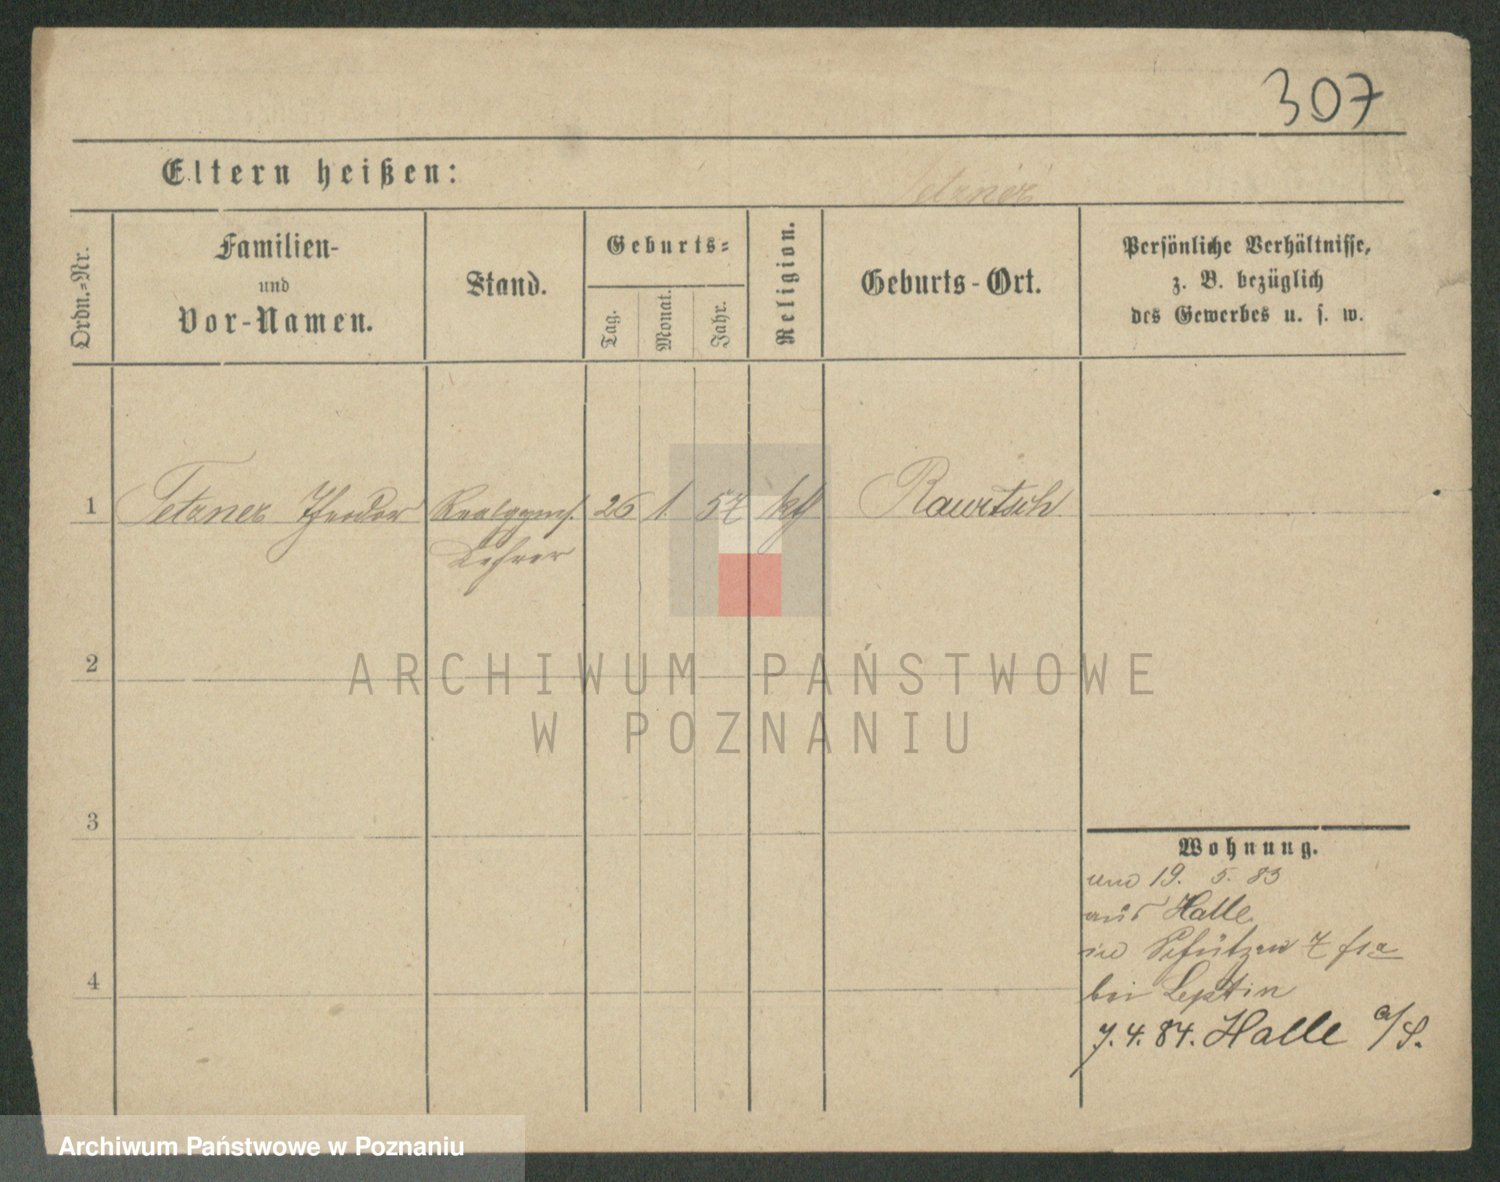 307
Eltern heißen:
Tetzner
Ordn.-Nr.
Familien-
und
Vor-Namen.
Stand.
Geburts-
Tag.
Monat.
Jahr.
Religion.
Geburts-Ort.
Persönliche Verhältnisse,
z. B. bezüglich
des Gewerbes u. s. w.
1 Tetzner Theodor Realgyms. 26 1 57 kth Rawitsch
Lehrer
2
ARCHIWUM PAŃSTWOWE
W POZNANIU
3
Wohnung.
19. 5. 83
aus Halle
in Schützen 7
bei Leptin
4
7. 4. 84. Halle a/S.
Archiwum Państwowe w Poznaniu